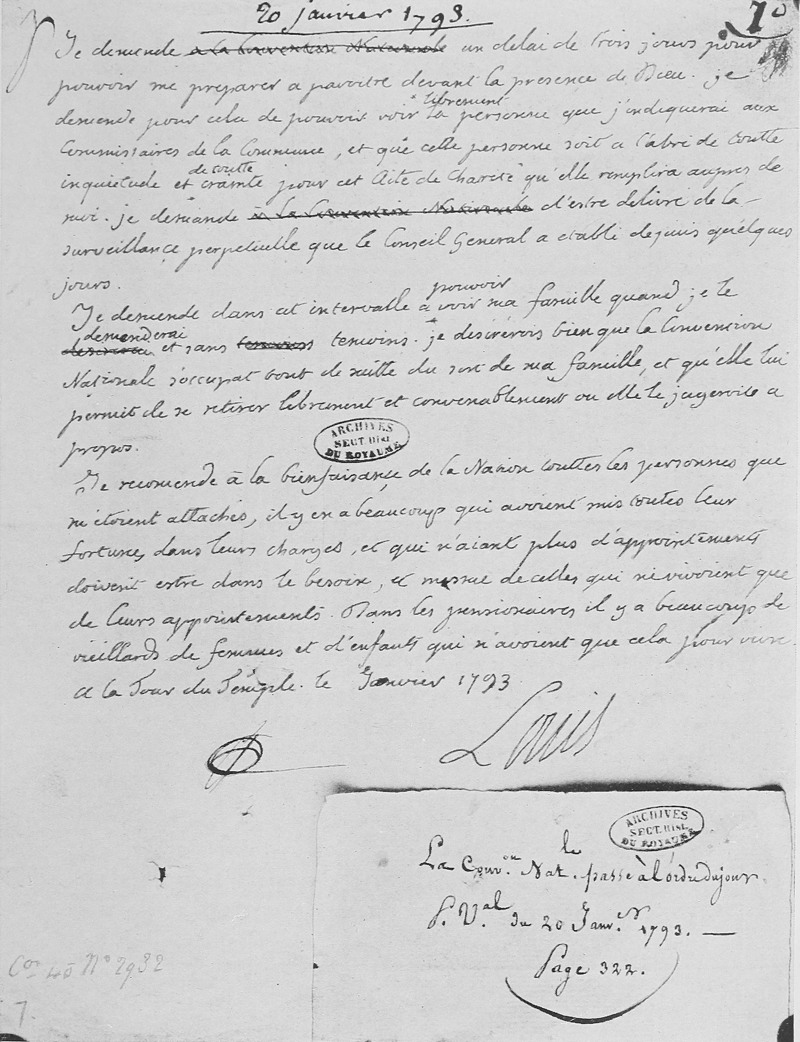 20 janvier 1793.
7º
Je demende a la Convention Nationale un delai de trois jours pour
pouvoir me preparer a paroitre devant la presence de Dieu. je
demende pour cela de pouvoir voir librement la personne que j'indiquerai aux
Commissaires de la Commune, et que cette personne soit a l'abri de toutte
inquietude et de toutte crainte pour cet Acte de Charité qu'elle remplira aupres de
moi. je demande à la Convention Nationale d'estre delivré de la
surveillance perpetuelle que le Conseil General a etabli depuis quelques
jours.
Je demende dans cet intervalle a pouvoir voir ma famille quand je le
demenderai et sans temoins. je desirerois bien que la Convention
Nationale s'occupat tout de suitte du sort de ma famille, et qu'elle lui
permit de se retirer librement et convenablement ou elle le jugeroit a
propos.
ARCHIVES
SECT. HIST.
DU ROYAUME
Je recomende à la bienfaisance de la Nation touttes les personnes que
m'étoient attachés, il y en a beaucoup qui avoient mis toutes leur
fortunes, dans leurs charges, et qui n'aiant plus d'appointements
doivent estre dans le besoin, et mesme de celles qui ne vivoient que
de leurs appointements. Dans les pensionaires il y a beaucoup de
vieillards de femmes et d'enfants qui n'avoient que cela pour vivre.
A la Tour du Temple. le Janvier 1793.
Louis
ARCHIVES
SECT. HIST.
DU ROYAUME
La Conv.on Nat.le passe à l'ordre du jour.
P. V.al du 20 Janv.er 1793. —
Page 322.
Nº 2932
7.